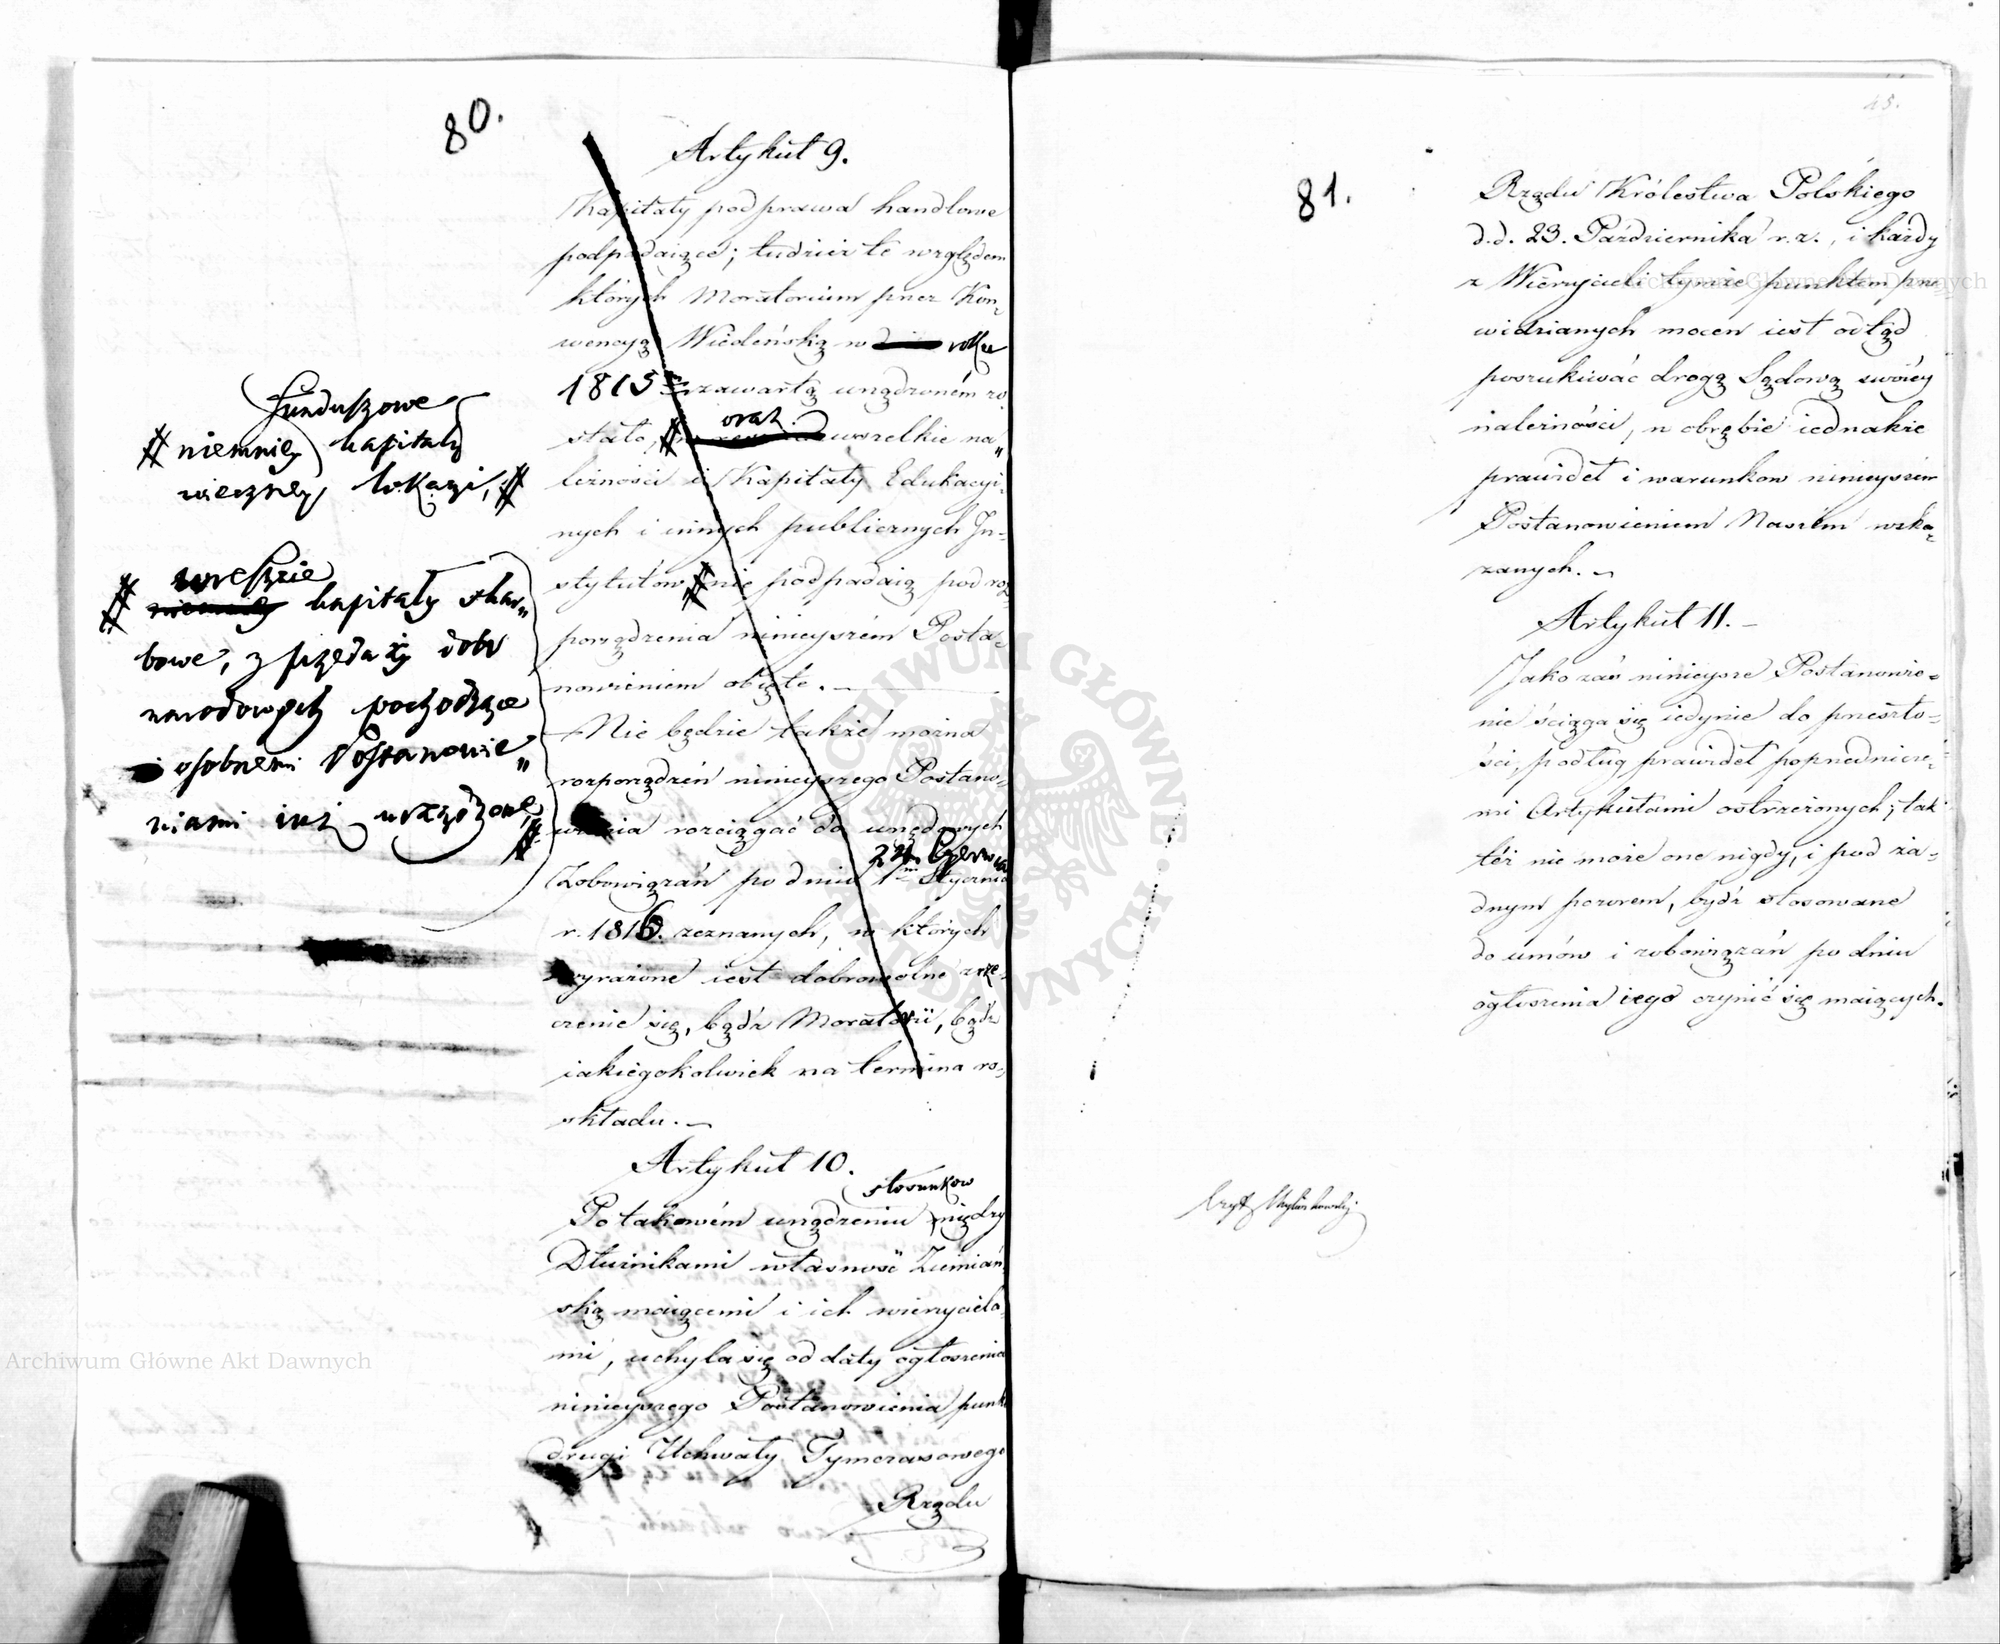 80.
Artykuł 9.
Kapitały pod prawa handlowe
podpadaiące; tudzież te względem
których Moratorium przez Kon„
wencyą Wiedeńską w roku
1815 zawartą urządzoném zo„
stało, # oraz wszelkie na„
leżności i Kapitały Edukacyi„
nych i innych publicznych In„
stytutów # nie podpadaią pod roz„
porządzenia ninieyszém Posta„
nowieniem obięte. —
Nie będzie także można
rozporządzeń ninieyszego Postano„
wienia rozciągać do urzędowych
24. Czerwca
Zobowiązań po dniu 1m Stycznia
r. 1816. zeznanych, w których
wyrażone iest dobrowolne zrze„
czenie się, bądź Moratorii, bądź
iakiegokolwiek na termina ro„
składu. —
Funduszowe
# niemniey kapitały
wieczney lokacyi, #
wreszcie
# niemniey kapitały skar„
bowe, z przedaży dobr
narodowych pochodzące
i osobnemi Postanowie„
niami iuż urządzone, #
Artykuł 10.
stosunkow
Po takowém urządzeniu między
Dłużnikami własność Ziemiań„
ską maiącemi i ich wierzyciela„
mi, uchyla się od daty ogłoszenia
ninieyszego Postanowienia punkt
drugi Uchwały Tymczasowego
Rządu
45.
81.
Rządu Królestwa Polskiego
d.d. 23. Października r.z., i każdy
z Wierzycieli tymże punktem prze„
widzianych mocen iest odtąd
poszukiwać drogą Sądową swoiey
należności, w obrębie iednakże
prawideł i warunkow ninieyszém
Postanowieniem Naszém wska„
zanych. —
Artykuł 11. —
Jako zaś ninieysze Postanowie„
nie ściąga się iedynie do przeszło„
ści, podług prawideł poprzednicze„
mi Artykułami ostrzeżonych; tak
też nie może one nigdy, i pod ża„
dnym pozorem, bydź stosowane
do umów i zobowiązań po dniu
ogłoszenia iego czynić się maiących.
Archiwum Główne Akt Dawnych
Archiwum Główne Akt Dawnych
ARCHIWUM GŁÓWNE AKT DAWNYCH